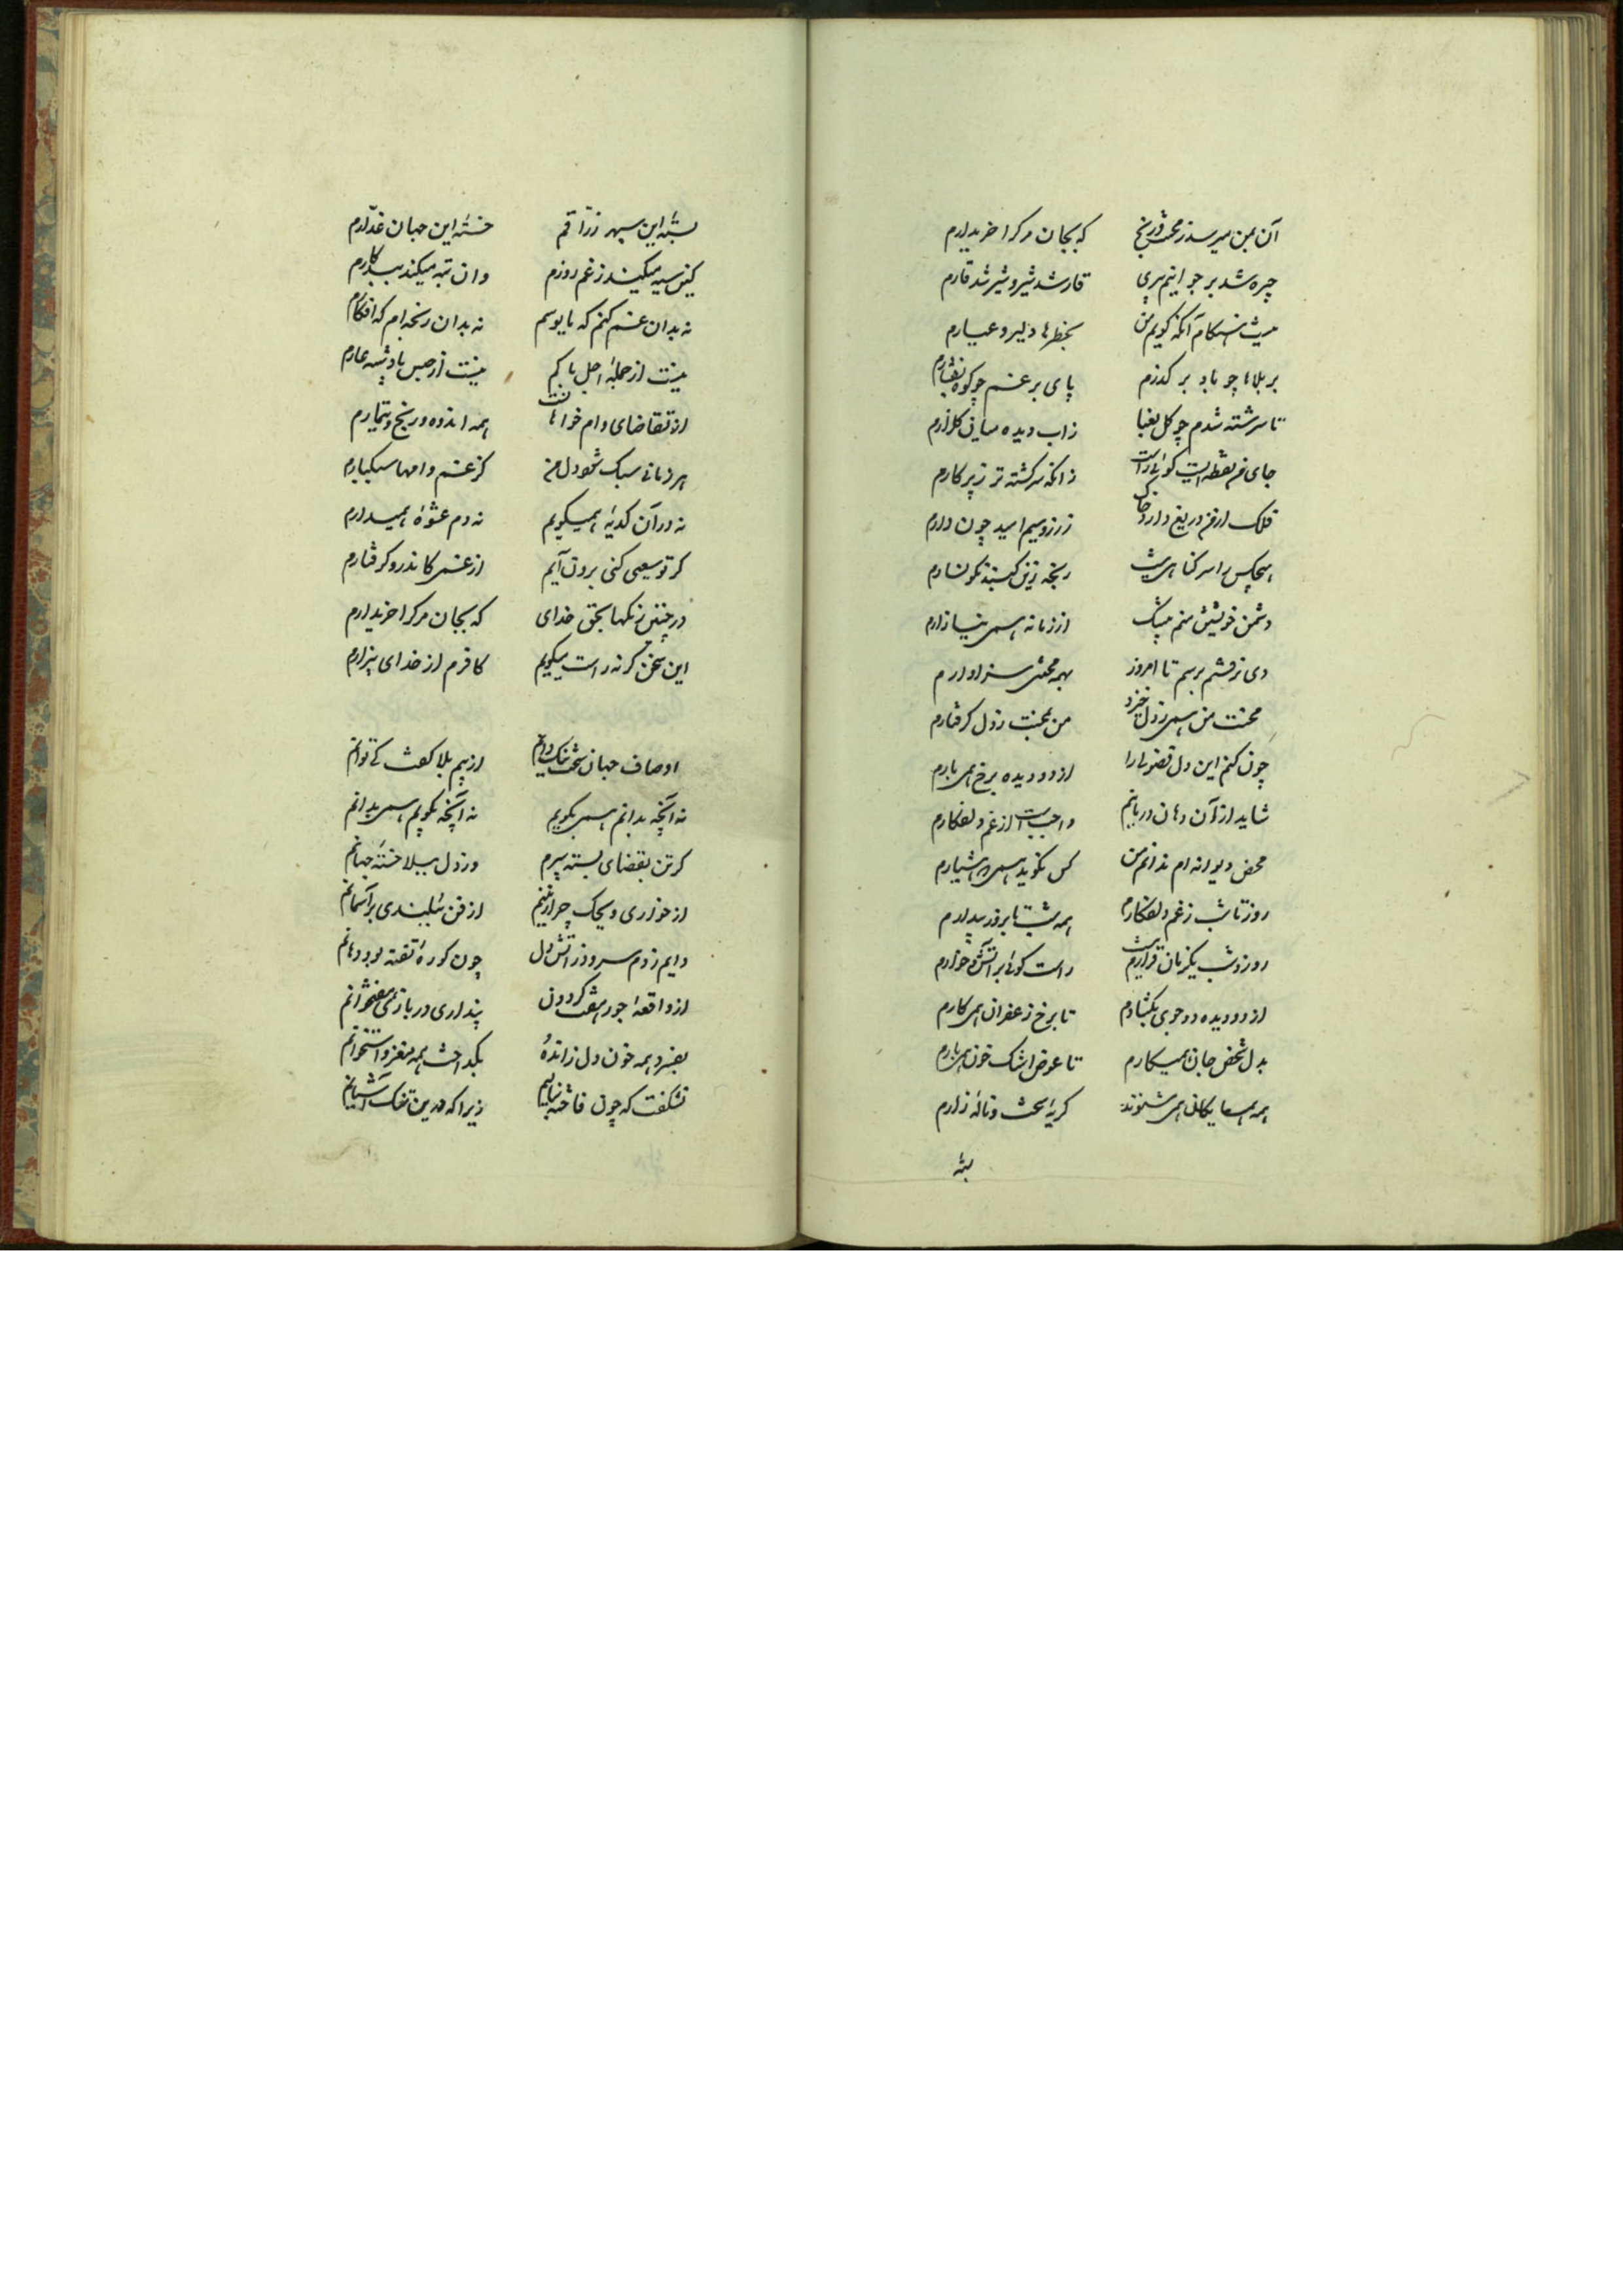 آن بمن میرسد ز محنت و رنج که بجان مرک را خریدارم
چیره شد بر جوانیم پیری قار شد شیر و شیر شد قارم
نیست هنکام آنکه کویم من بخطرها دلیر و عیارم
بر بلاها چو باد بر کذرم پای بر غم چو کوه بفشارم
تا سرشته شدم چو کل بعنا زاب دیده میان کلزارم
جای من نقطه ایست کوئی راست زانکه سرکشته تر ز پرکارم
فلک از من دریغ دارد خاک زر و سیم امید چون دارم
هیچکس را سر کناهی نیست رنجه زین کنبد نکونسارم
دشمن خویشتن منم بیشک از زمانه همی نیازارم
دی نرفتم برسم تا امروز بهمه محنتی سزاوارم
محنت من همی ز دل خیزد من بمحنت ز دل کرفتارم
چون کنم این دل فضولی را از دو دیده برخ همی بارم
شاید از آن دهان در بانم واجب است از غم دل افکارم
محض دیوانه ام ندانم من کس نکوید همی که هشیارم
روز تا شب ز غم دل افکارم همه شب تا بروز بیدارم
روز و شب یکزمان قرارم نیست راست کوئی بر آتش و خارم
از دو دیده دو جوی بکشادم تا برخ زعفران همی کارم
بدل شخص جان همیکارم تا عوض اشک خون همی بارم
همه همسایکان همی شنوند کریه سخت و ناله زارم
بسته
بسته این سپهر زراقم خسته این جهان غدارم
کین سیه میکند ز غم روزم وان تبه میکند ببد کارم
نه بدان غم کنم که مایوسم نه بدان رنجه ام که افکارم
نیست از حمله اجل باکم نیست از حبس پادشه عارم
از تقاضای وام خواهانست همه اندوه و رنج و تیمارم
هر زمانی سبک شود دل من کز غم وامها سبکبارم
نه در آن کدیه همیکویم نه دم عشوه همیدارم
کر تو سعیی کنی برون آیم از غمی کاندرو کرفتارم
در چنین رنکها بحق خدای که بجان مرک را خریدارم
این سخن کر نه راست میکویم کافرم از خدای بیزارم
اوصاف جهان سخت نیک دانم از بیم بلا کفت کی توانم
نه آنچه بدانم همی بکویم نه آنچه بکویم همی بدانم
کر تن بقضای بسته سپرم ور دل ببلا خسته جهانم
از خواری ویحک چرا زمینم از من ببلندی بر آسمانم
دایم ز دم سرد و ز آتش دل چون کوره تفته بود دهانم
از واقعه جور هفت کردون پنداری در باز هفتخوانم
بفسرد همه خون دل ز اندوه بکداخت همه مغز و استخوانم
نشکفت که چون فاخته بنالم زیرا که درین تنک آشیانم